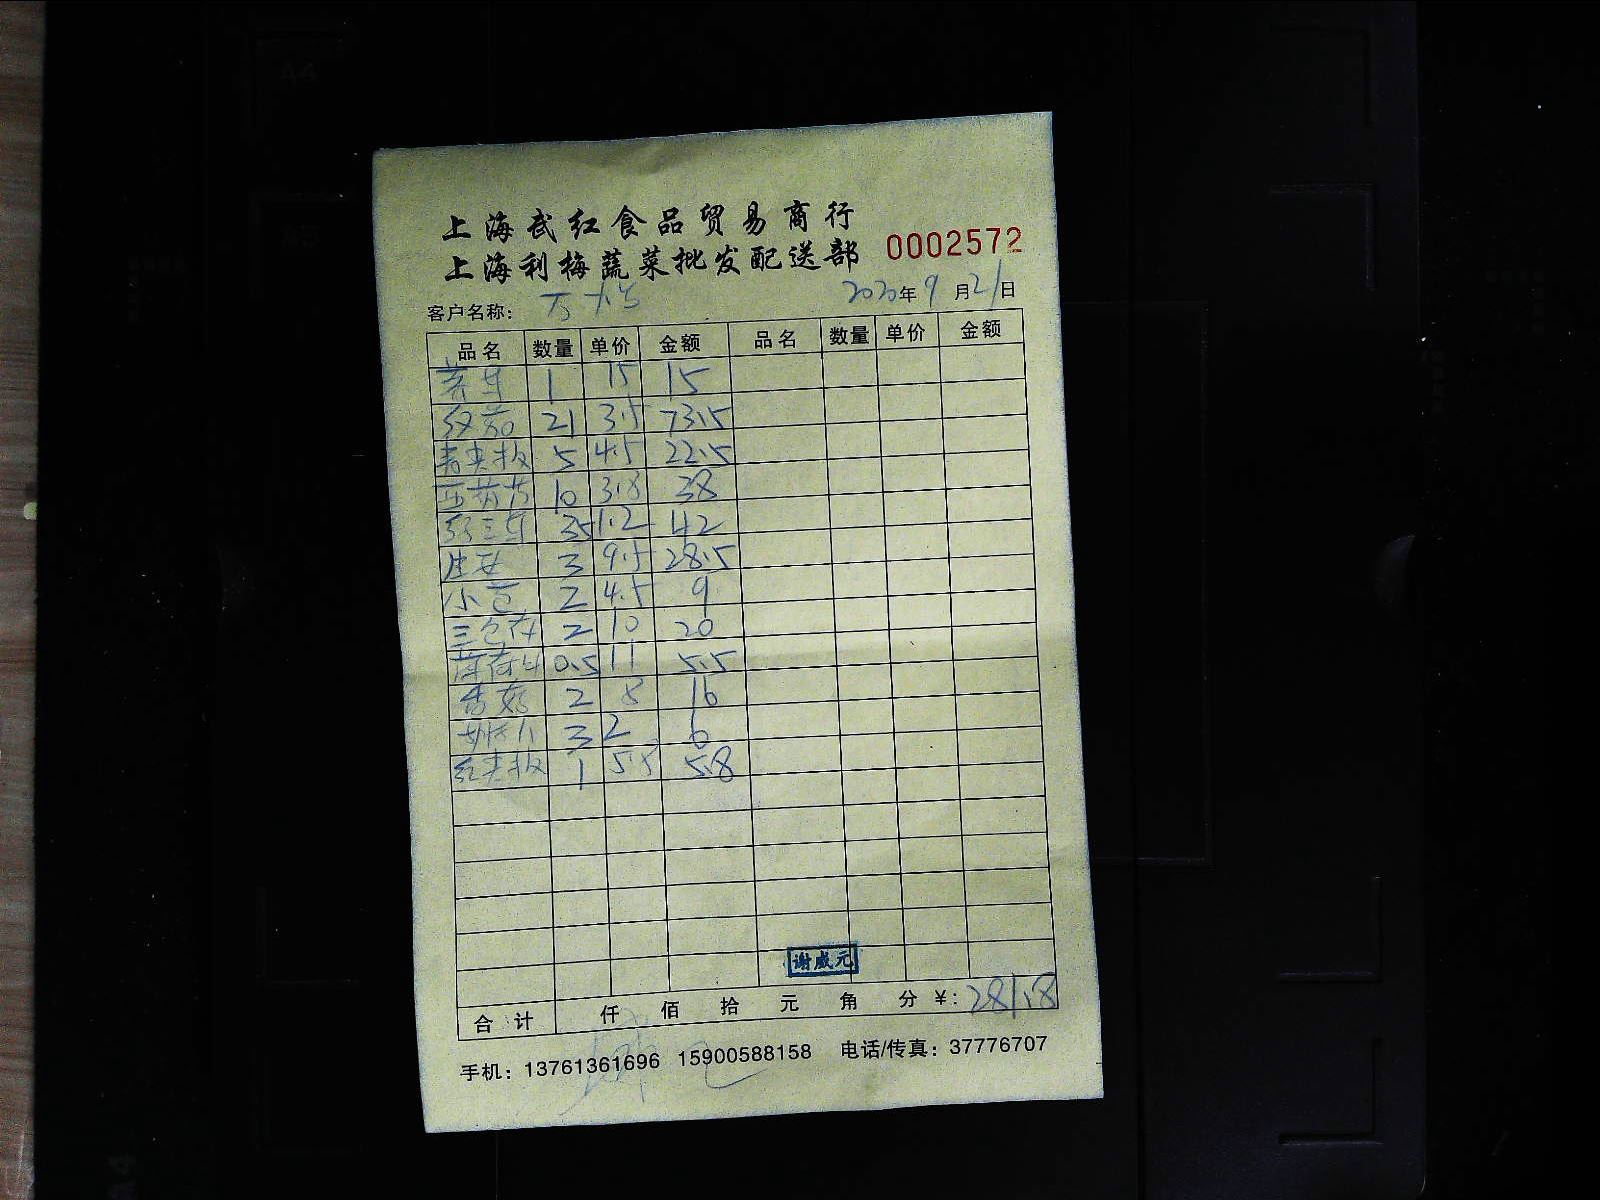 上海武红食品贸易商行
上海利梅蔬菜批发配送部
0002572
客户名称：
2020年9月21日
品名 数量 单价 金额 品名 数量 单价 金额
1 15 15
21 3.5 73.5
青尖椒 5 4.5 22.5
10 3.8 38
35 1.2 42
3 9.5 28.5
小 2 4.5 9
三色 2 10 20
薄荷叶 0.5 11 5.5
香菇 2 8 16
3 2 6
红尖椒 1 5.8 5.8
谢咸元
合计 仟 佰 拾 元 角 分 ￥：281.8
手机：13761361696 15900588158 电话/传真：37776707